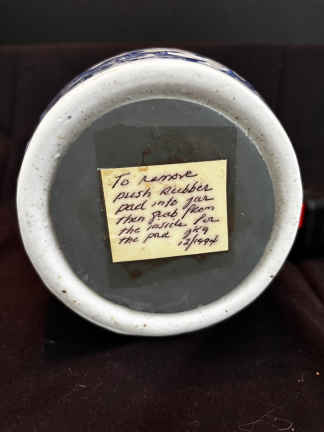 To remove
push rubber
pad into jar
then grab from
the inside for
the pad
12/1994